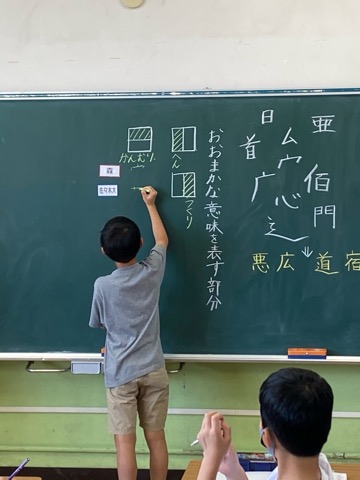 亜
佰
門
ム
宀
心
辶
日
首
广
悪 広 道 宿
おおまかな意味を表す部分
へん
つくり
かんむり
宀
森
佐々木大